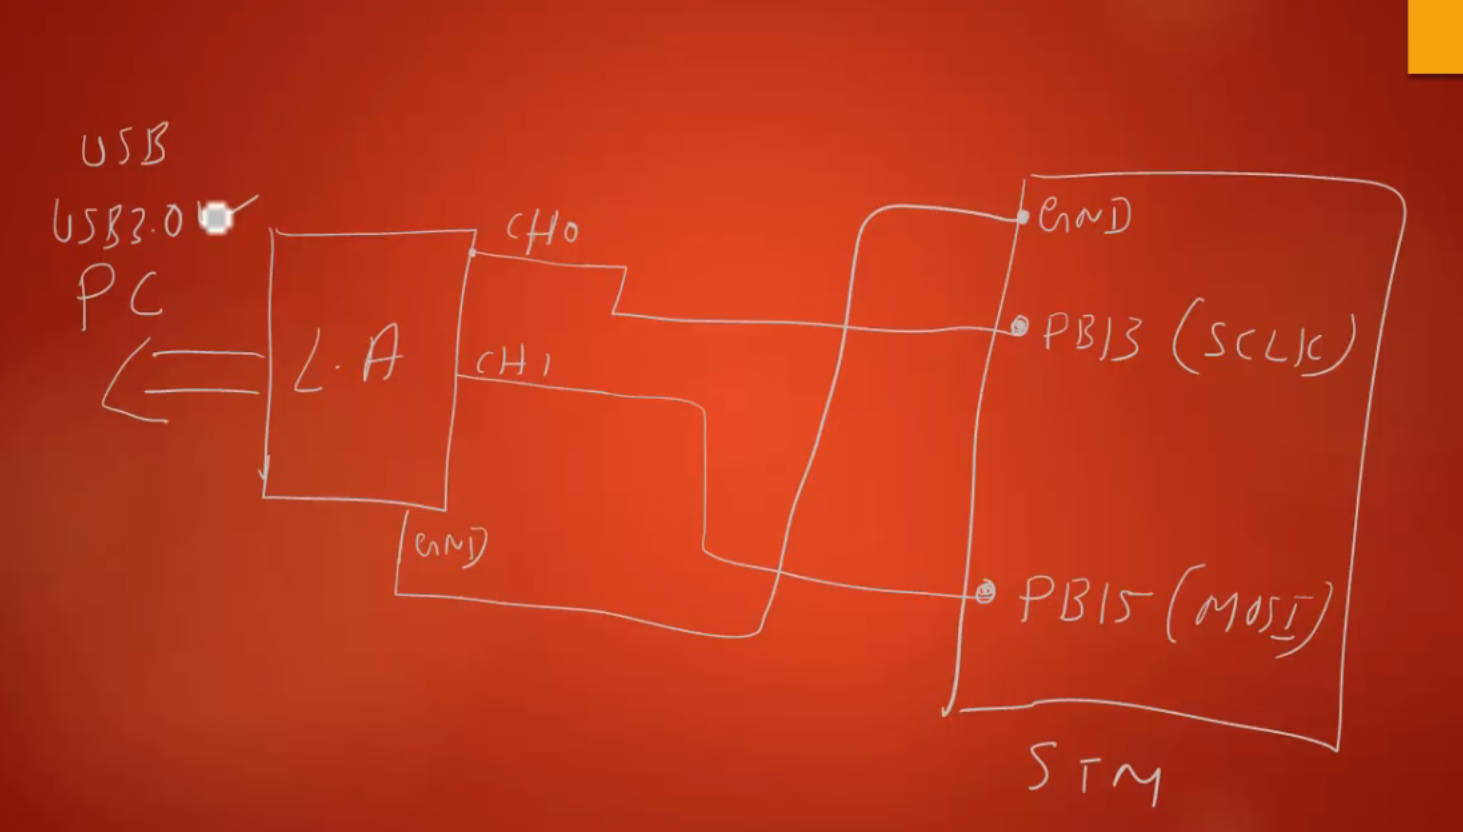 USB
USB3.0
PC
L.A
CH0
CH1
GND
GND
PB13 (SCLK)
PB15 (MOSI)
STM